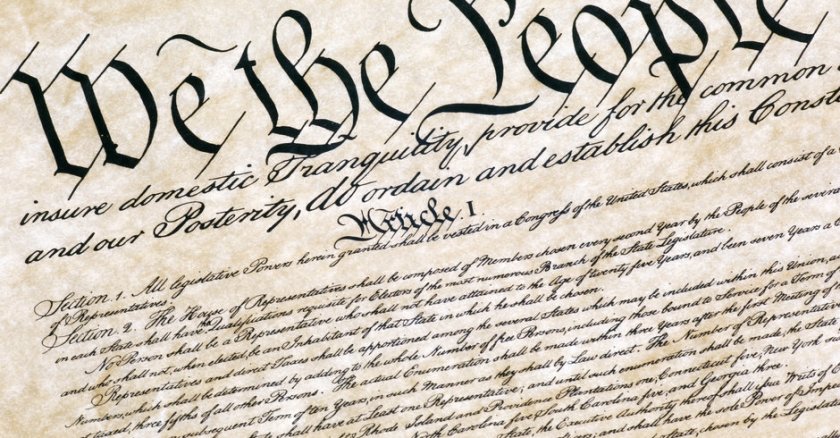 We the People
insure domestic Tranquility, provide for the common
and our Posterity, do ordain and establish this Const
Article I.
Section 1. All legislative Powers herein granted shall be vested in a Congress of the United States, which shall consist of a
of Representatives.
Section 2. The House of Representatives shall be composed of Members chosen every second Year by the People of the several
in each State shall have the Qualifications requisite for Electors of the most numerous Branch of the State Legislature.
No Person shall be a Representative who shall not have attained to the Age of twenty five Years, and been seven Years a
and who shall not, when elected, be an Inhabitant of that State in which he shall be chosen.
Representatives and direct Taxes shall be apportioned among the several States which may be included within this Union,
Numbers, which shall be determined by adding to the whole Number of free Persons, including those bound to Service for a Term of
not taxed, three fifths of all other Persons. The actual Enumeration shall be made within three Years after the first Meeting of
subsequent Term of ten Years, in such Manner as they shall by Law direct. The Number of Representatives
shall have at Least one Representative; and until such enumeration shall be made, the State
Rhode Island and Providence Plantations one, Connecticut five, New York
North Carolina five, South Carolina five, and Georgia three.
State, the Executive Authority thereof shall issue Writs of
and shall have the sole Power of Imp
State, chosen by the Legisla